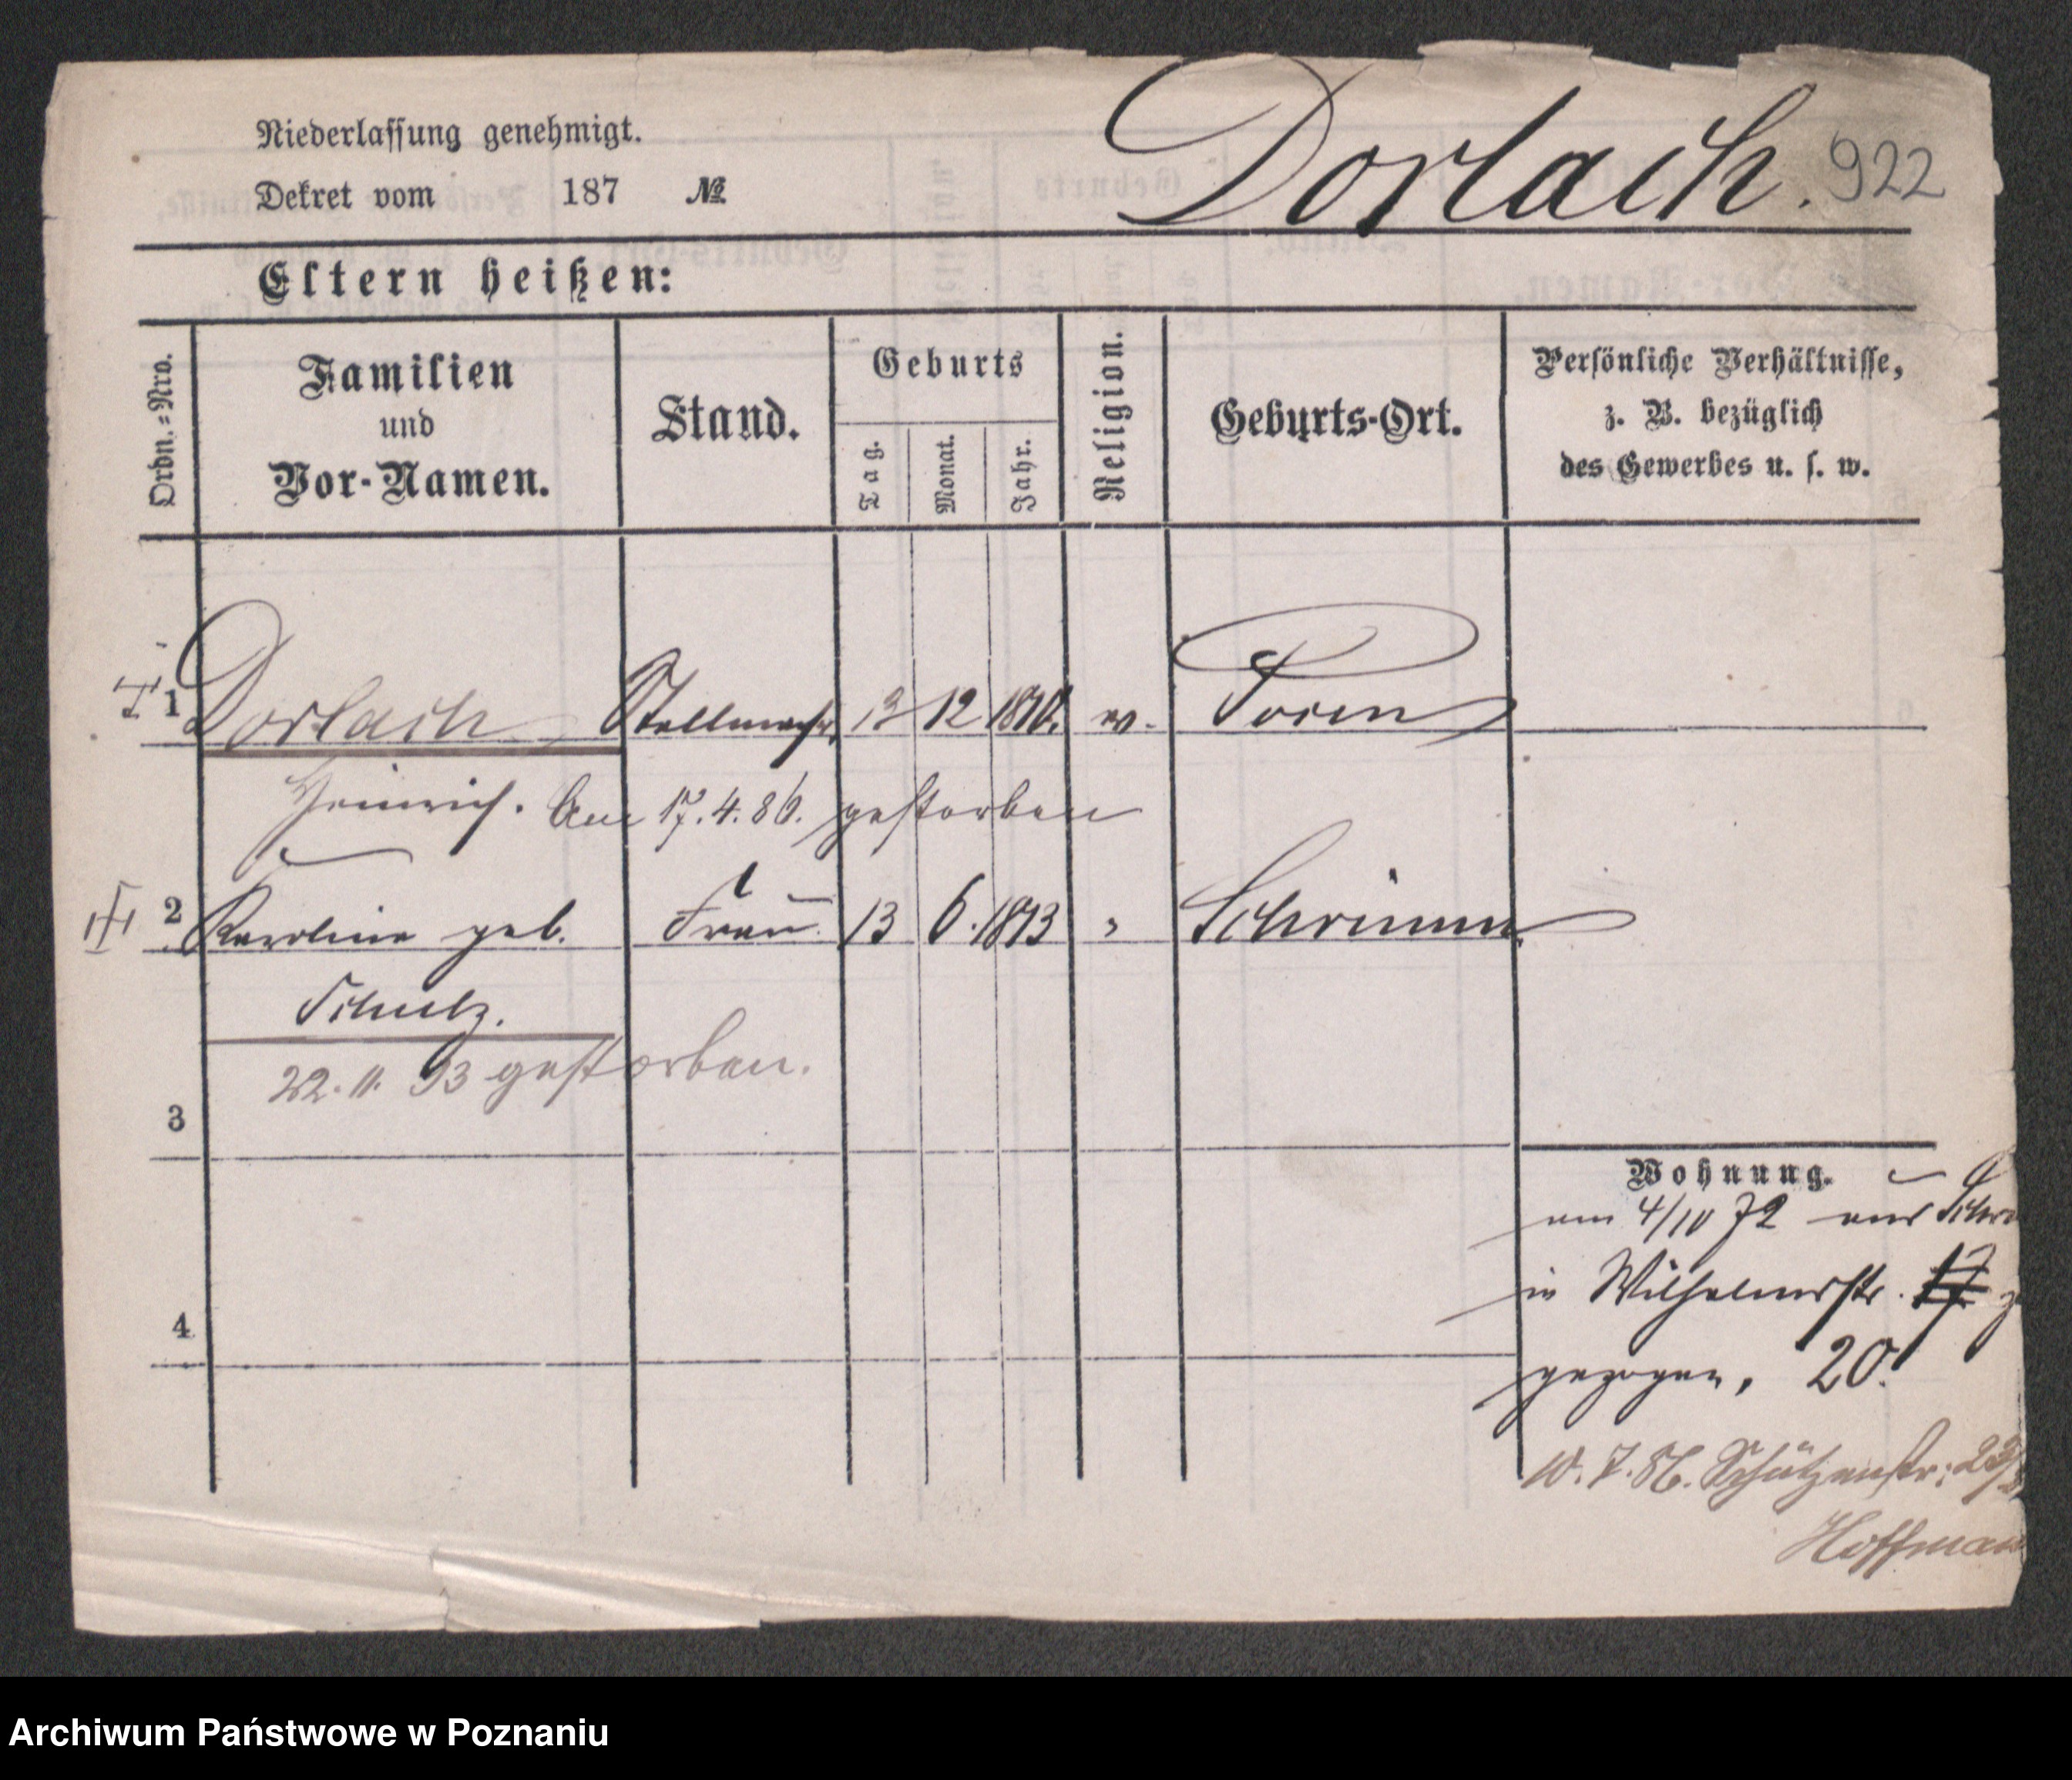 Niederlassung genehmigt.
Dekret vom 187 №
Dorlach. 922
Eltern heißen:
Ordn.-Nro.
Familien
und
Vor-Namen.
Stand.
Geburts
Tag.
Monat.
Jahr.
Religion.
Geburts-Ort.
Persönliche Verhältnisse,
z. B. bezüglich
des Gewerbes u. s. w.
1 Dorlach 13 12 Posen
Heinrich. Am 17.4.86. gestorben
2 Karoline geb. Frau 13 6. 1813 " Schrimm
Schulz.
22. 11. 93 gestorben.
3
4
Wohnung.
am 4/10 72 aus
in Wilhelmstr. 17
gezogen, 20.
10. 7. 86. Schützenstr.
Hoffman
Archiwum Państwowe w Poznaniu